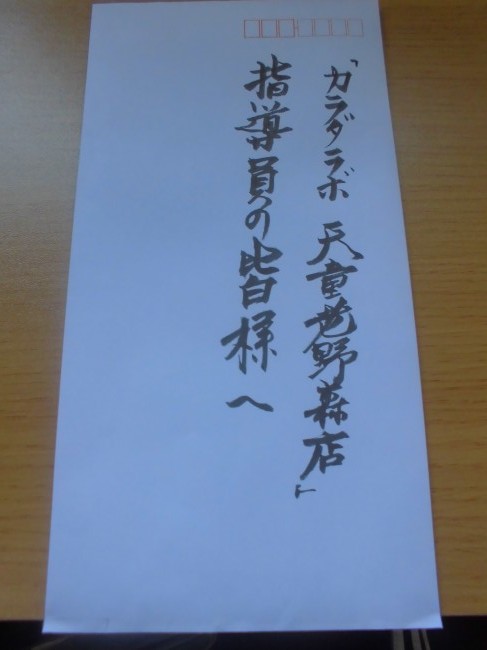 「カラダラボ 天童老野森店」
指導員の皆様へ